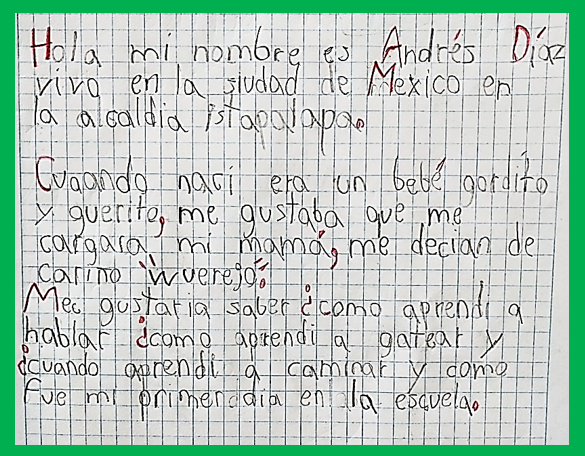 Hola mi nombre es Andrés Díaz
vivo en la siudad de Mexico en
la alcaldia istapalapa.
Cuaando naci era un bebé gordito
y guerito, me gustaba que me
cargara mi mamá, me decian de
carino "wuerejo".
Mee gustaria saber ¿como aprendi a
hablar ¿como aprendi a gatear y
¿cuando aprendi a caminar y como
fue mi primer daia en la escuela.